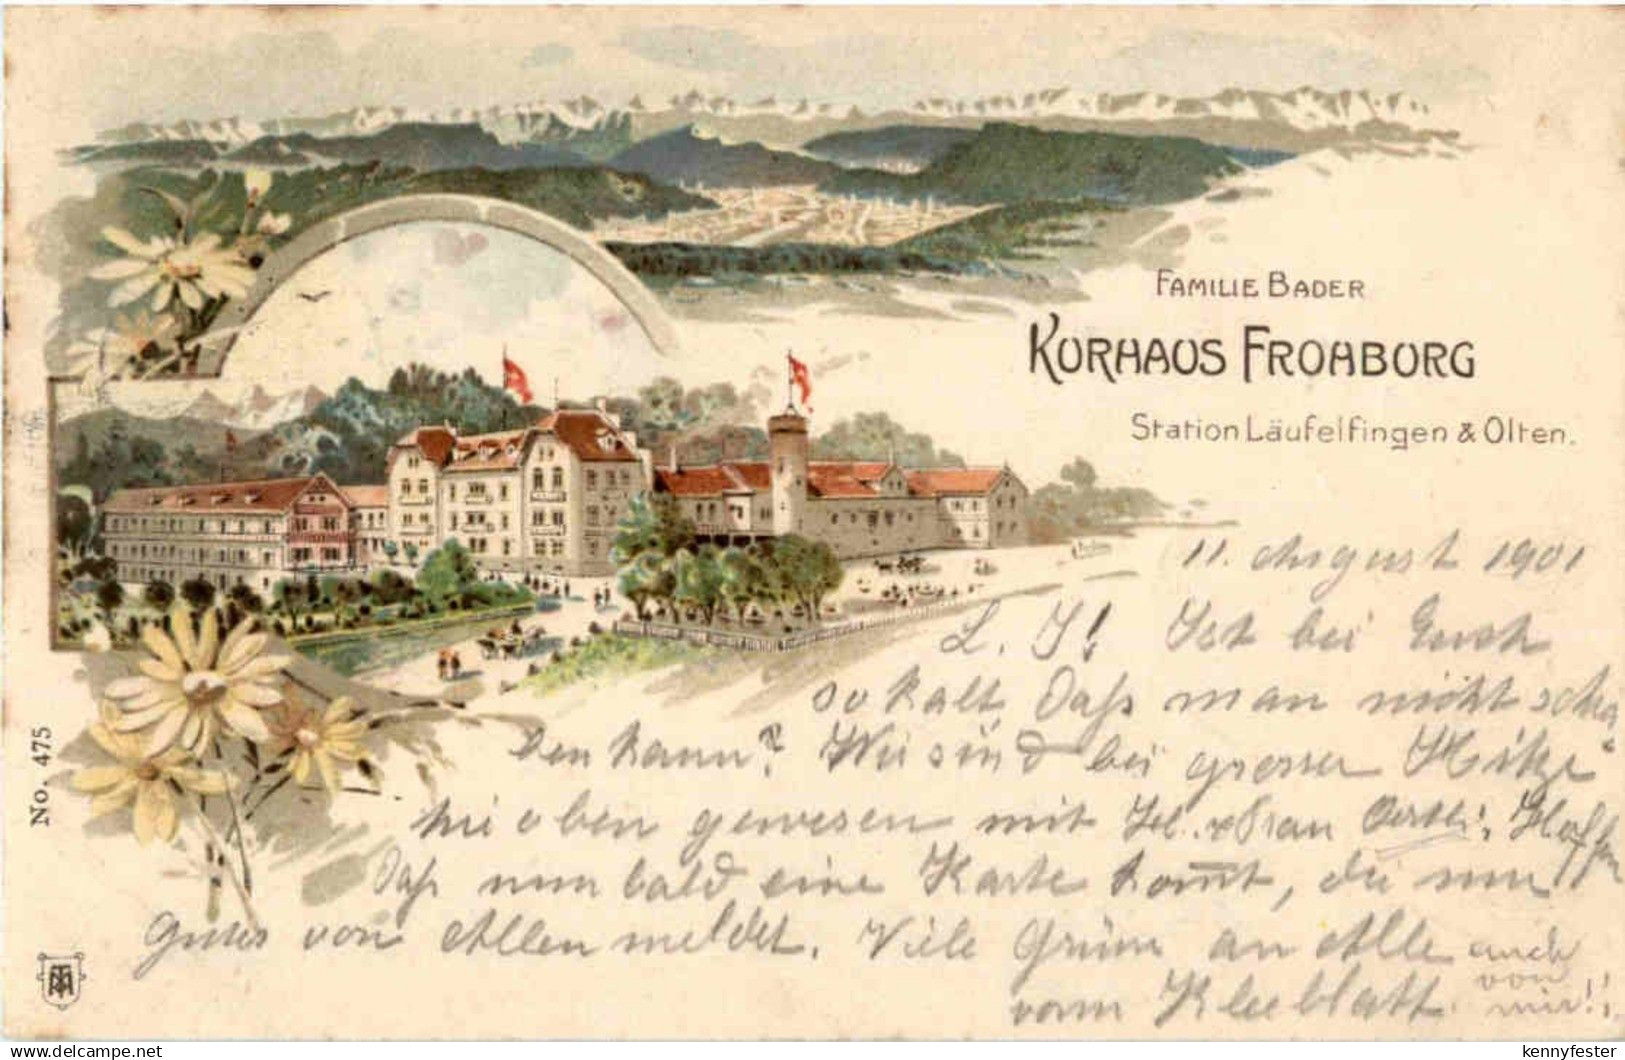 FAMILIE BADER
KURHAUS FROHBURG
Station Läufelfingen & Olten.
11. August 1901
L. J! Ist bei Euch
so kalt daß man nicht schrei
ben kann? Wir sind bei grosser Hitze
hie oben gewesen mit Frau Oertli. Hoffen
daß nun bald eine Karte kommt, die nur
gutes von Allen meldet. Viele Grüsse an Alle auch
vom Kleeblatt. von
mir!!
No. 475
kennyfester